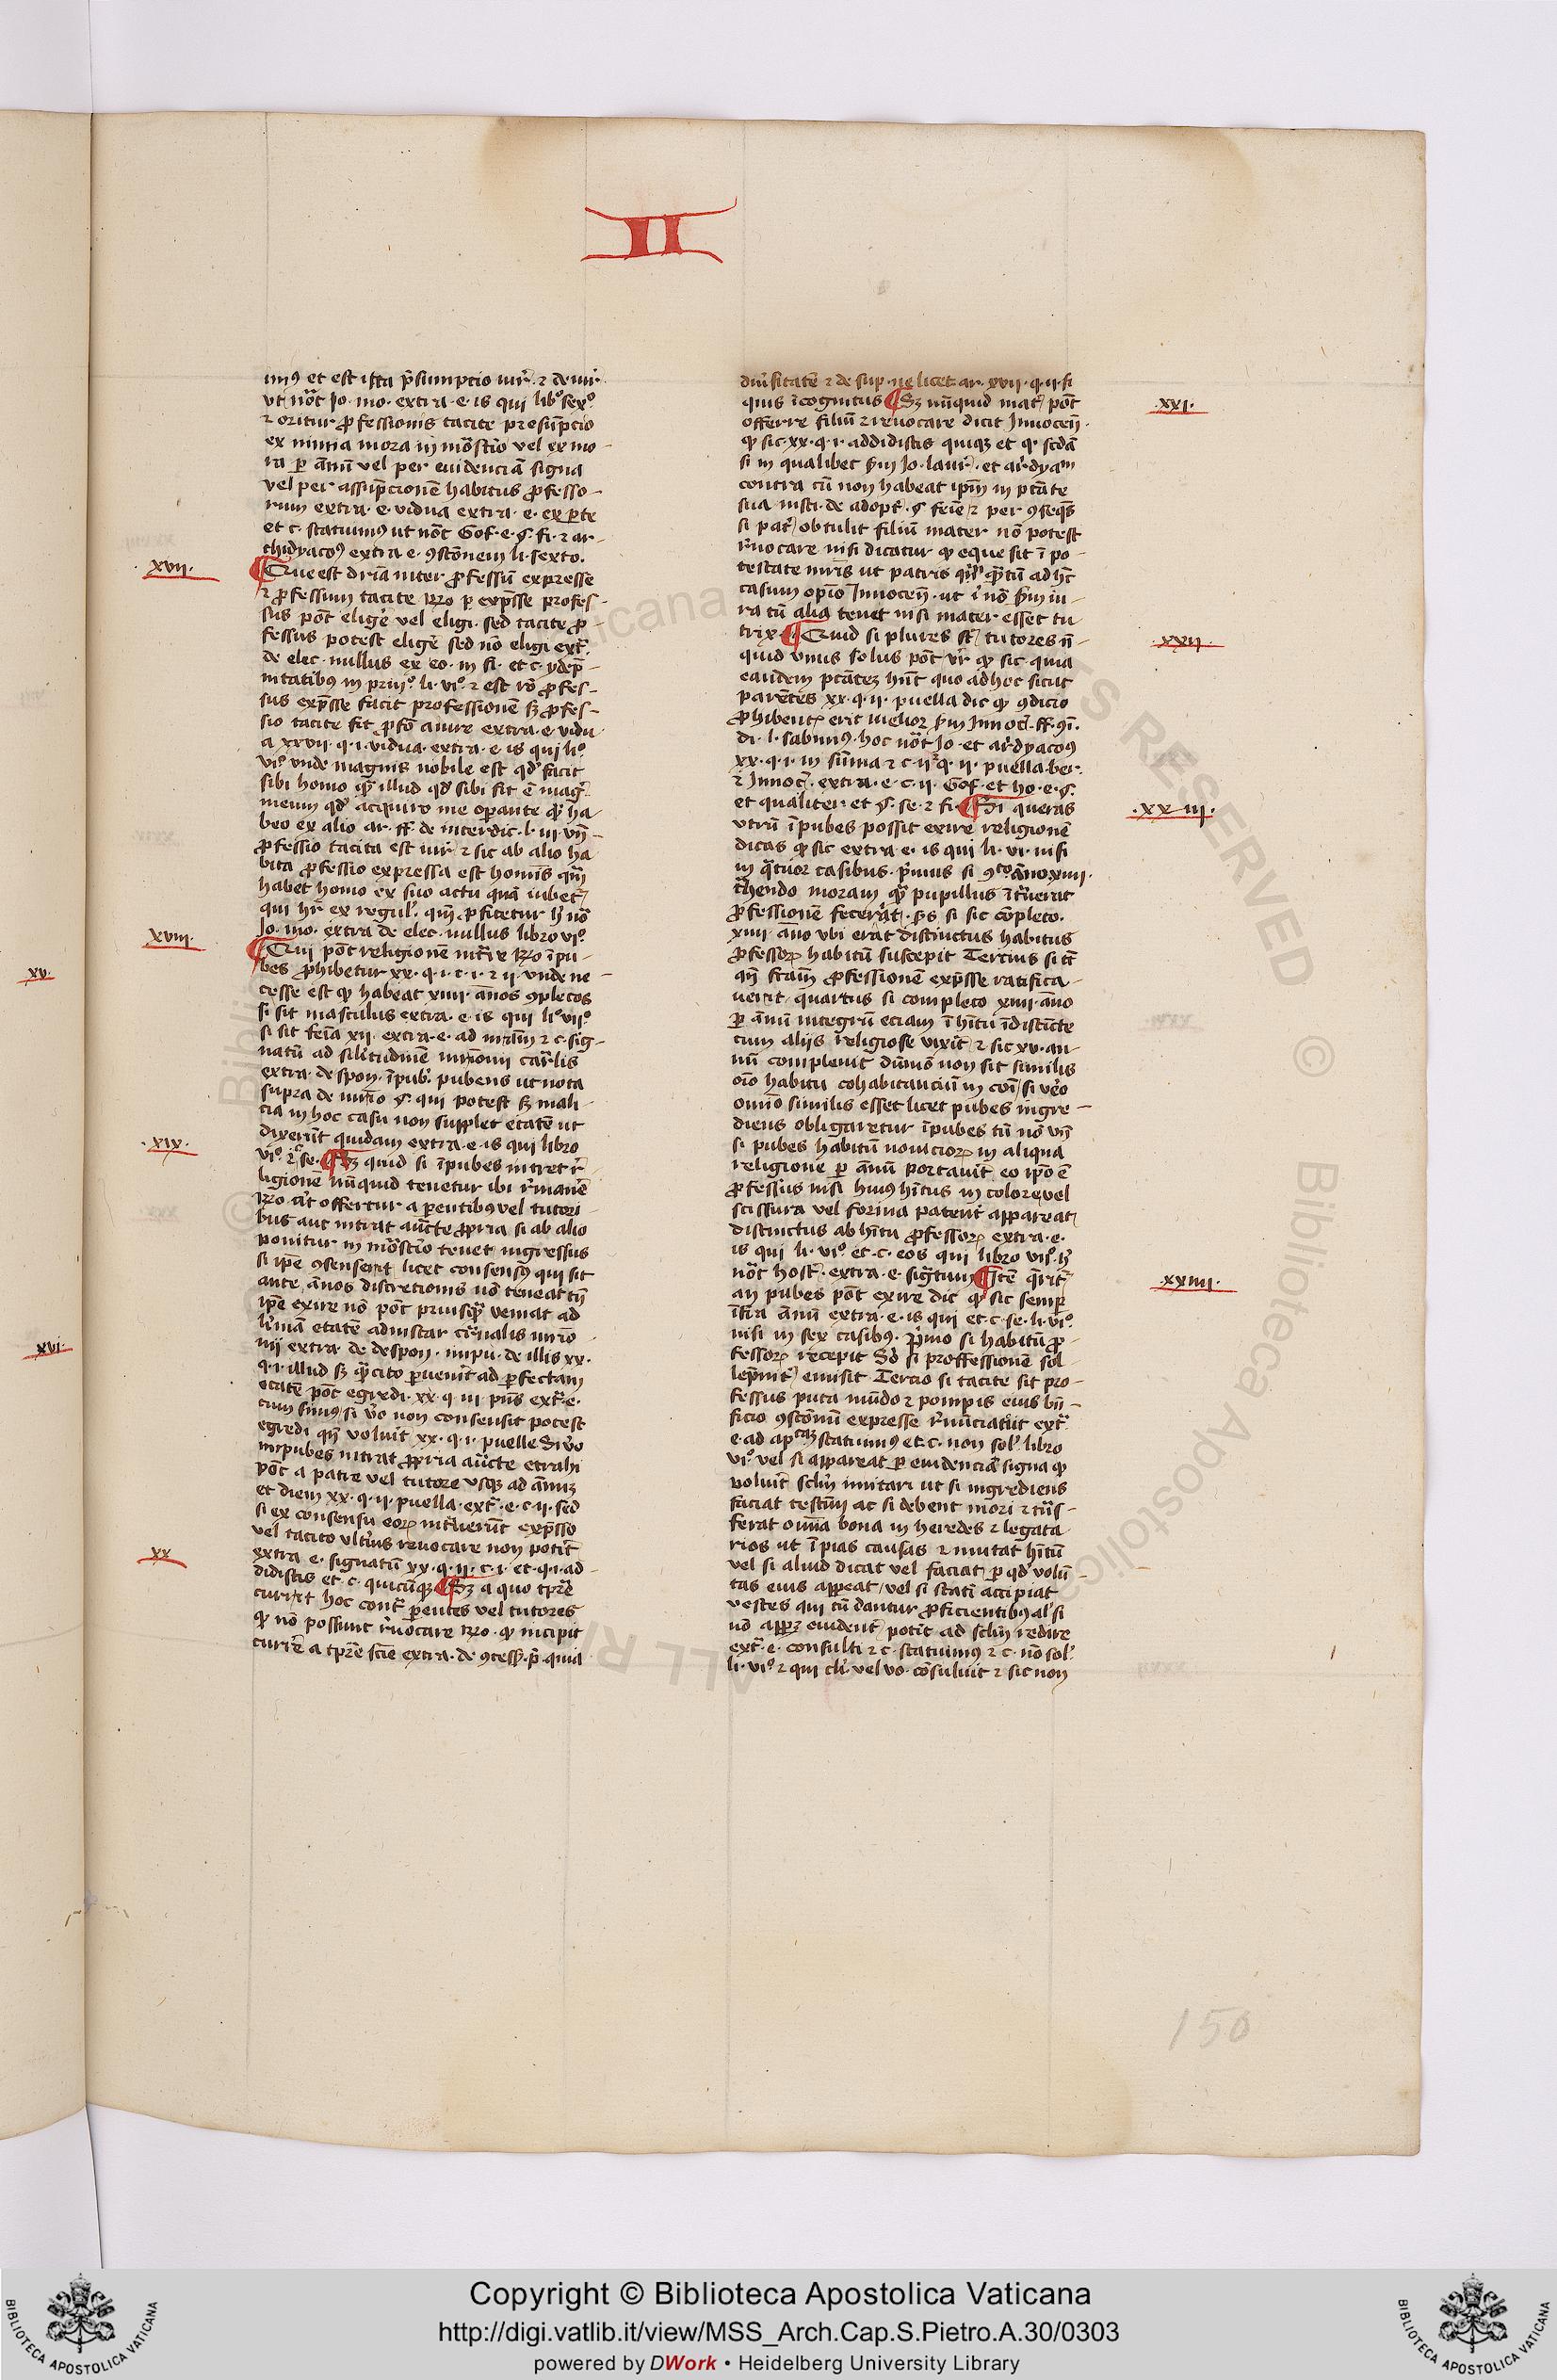 II
imꝯ et est ista p̄sumpcio iur̄ ⁊ de iur̄
vt nōt Jo. mo. extra. e. is qui libº sexº.
⁊ oritur ꝓfessionis tacite presūpcio
ex nimia mora in mōstīo vel ex mo
ra ꝑ annū vel per euidenciā signa
vel per assūpcionē habitus ꝓfesso-
rum extra. e. vidua extra. e. ex ꝑte
et c. statuimꝯ ut nōt Gof. e. §. fi. ⁊ ar-
chidyacoꝯ extra e. ꝯstōnem li. sexto.
xvii.
¶ Que est dr̄ia inter ꝓfessū expresse
⁊ ꝓfessum tacite Rº. ꝑ exp̄sse profes-
sus pōt eligē vel eligi. sed tacite ꝓ
fessus potest eligē sed nō eligi ext̄.
de elec. nullus ex eo. in fi. et c.
nitatibꝯ in priiº. li. viº. ⁊ est rō ꝓfes-
sus exp̄sse facit professionē sꝫ ꝓfes-
sio tacite fit ꝓ fō a iure extra. e. vidu
a xxvii. q. i. vidua. extra. e. is qui liº.
viº. vnde magnis nobile est qd̄ facit
sibi homo qᷓ illud qd̄ sibi sit ē maḡ
meum qd̄ acquiro me oꝑante qᷓ ha
beo ex alio ar. ff. de interdic. l. iii vn̄-
ꝓfessio tacita est iur̄ ⁊ sic ab alio ha
bita ꝓfessio expressa est homīs qm̄
habet homo ex suo actu quā iubet
qui hr̄ ex regul̄. qm̄ ꝓfitetur
Jo. mo. extra de elec. nullus libro viº.
xviii.
¶ Qui pōt religionē int̄re Rº. īpu
bes ꝓhibetur xx. q. i. c. i. ⁊ ii vnde ne-
cesse est ꝙ habeat xiiii. annos ꝯpletos
si sit masculus extra. e. is qui liº. viiº.
si sit feīa xii. extra. e. ad nr̄am ⁊ c. sig-
natū ad silitudinē mr̄ionii car̄lis
extra. de spon. īpub. pubens ut nota
supra de mr̄io §. qui potest sꝫ mali
cia in hoc casu non supplet etatē ut
dixerūt quidam extra. e. is qui libro
xix.
viº. ⁊ se. ¶ Sꝫ quid si īpubes intret r̄
ligionē nūquid tenetur ibi r̄manē
Rº. aut offertur a ꝑentibꝯ vel tutori
bus aut intrat auct̄te ꝓpria si ab alio
ponitur in mōstīo tenet ingressus
si ipē ꝯsenserit licet consensꝯ qui sit
ante annos discretionis nō teneat tn̄
ipē exire nō pōt priusqᷓ veniat ad
l̄imā etatē adinstar cr̄nalis mr̄io
nii extra de despon. inpu. de illis xx.
q. i. illud sꝫ qᷓcito ꝑuenit ad ꝑfectam
etatē pōt egredi. xx. q. iii. p̄us ext̄. e.
cum simꝯ si v̄o non consensit potest
egredi qn̄ voluit xx. q. i. puelle Si v̄o
inpubes intrat ꝓpria auct̄te extrahi
pōt a patre vel tutore vsqꝫ ad annū
et diem xx. q. ii. puella. ext̄. e. c. ii. sed
si ex consensu eoꝝ int̄uerūt exp̄sso
vel tacito vlt̄ius reuocare non potūt
xx
extra e. signatū xx. q. ii. c. i. et q. i. ad-
didistis et c. quicūqꝫ ¶ Sꝫ a quo tp̄re
currit hoc cont̄ ꝑentes vel tutores
ꝙ nō possunt r̄uocare Rº. ꝙ incipit
currē a tp̄re sciē extra. de ꝯcess. p̄. quia
diu̇sitatē ⁊ de sup. ne licet ar. xvii. q. ii. si
xxi.
quis īcognitus ¶ Sꝫ nūquid mat̄ pōt
offerre filiū ⁊ reuocare dicit Innocen̄.
ꝙ sic xx. q. i. addidistis quiqꝫ et q. scdā
si in qualibet s̄m Jo. laur̄. et ar̄dyam
contra cū non habeat ipm̄ in ptāte
sua insti. de adopt̄. §. feīe ⁊ per ꝯseqn̄s
si pat̄ obtulit filiū mater nō potest
r̄uocare nisi dicatur ꝙ eque sit ī po-
testate mr̄is ut patris qn̄ qᷓtū ad hūc
casum opīo Innocen̄. ut ī nō s̄m iu-
ra tū alia tenet nisi mater esset tu
xxii.
trix. ¶ Quid si plures sūt tutores n̄
quid vnus solus pōt vr̄ ꝙ sic quia
eandem ptātem hn̄t quo adhoc sicut
parentes xx. q. ii. puella dic ꝙ ꝯdicio
ꝓhibentꝭ erit melior s̄m Innoc̄. ff. ꝯī.
di. l. sabinꝯ. hoc nōt Jo. et ar̄dyacoꝯ
xx. q. i. in sūma ⁊ c. ii. q. ii. puella. ber.
⁊ Innoc̄. extra. e. c. ii. Gof. et ho. e. §.
xxiii.
et qualiter et §. se. ⁊ fi. ¶ Si queras
vtrū īpubes possit exire religionē
dicas ꝙ sic extra. e. is qui li. vi. nisi
in qᷓtuor casibus. p̄mus si ꝯto āno xiiii.
t̄hendo moram qᷓ pupillus īt̄uerit
ꝓfessionē fecerāt. Sꝫ si sic cōpleto.
xiiii. āno vbi erāt distinctus habitus
ꝓfessoꝝ habitū suscepit Tercius si tē
qn̄ fcam̄ ꝓfessionē exp̄sse ratifica-
uerit. quartus si completo xiiii. āno
ꝑ annū integrū eciam ī hītu īdistīcte
cum aliis religiose vixit ⁊ sic xv. an-
nū compleuit dūmō non sit similis
oīo habitu cohabitanciū in coī si v̄o
omīo similis esset licet pubes ingre-
diens obligaretur īpubes tū nō vn̄
si pubes habitū nouicioꝝ in aliqua
religione ꝑ annū portauit eo ipō ē
ꝓfessus nisi huiꝯ hītus in colore vel
scissura vel forma patenter appareat
distinctus ab hītu ꝓfessoꝝ extra. e.
is qui li. viº. et c. eos qui libro viº.
xxiiii.
nōt host̄. extra. e. signtum ¶ Itē qr̄itr̄
an pubes pōt exire dic ꝙ sic semꝑ
īfra annū extra. e. is qui et c. se. li. viº.
nisi in sex casibus. p̄mo si habitū ꝓ-
fessoꝝ recepit Sd̄ si proffessionē sol-
lepnit̄ emisit Tercio si tacite sit pro-
fessus puta mūdo ⁊ pompis eius bn̄-
ficio ꝯstōnū expresse r̄nūciauit ext̄.
e. ad aptcaꝫ statuimꝯ et c. non sol̄. libro
viº. vel si appareat ꝑ euidenciā signa ꝙ
voluit sclm̄ mutari ut si ingrediens
faciat testm̄ ac si debent mori ⁊ tn̄s-
ferat omīa bona in heredes ⁊ legata
rios ut ī pias causas ⁊ mutat hītū
vel si aliud dicat vel faciat ꝑ qd̄ volū-
tas eius appeat vel si statī accipiat
vestes qui tū dantur ꝓficientibꝯ al̄ si
nō appꝫ euident̄ potūt ad sclm̄ redire
ext̄. e. consulti ⁊ c. statuimꝯ ⁊ c. nō sol̄.
li. viº. ⁊ qui cl̄i. vel vo. cōsuluit ⁊ sic non
xv.
xvi.
150
Copyright © Biblioteca Apostolica Vaticana
http://digi.vatlib.it/view/MSS_Arch.Cap.S.Pietro.A.30/0303
powered by DWork • Heidelberg University Library
BIBLIOTECA APOSTOLICA VATICANA
BIBLIOTECA APOSTOLICA VATICANA